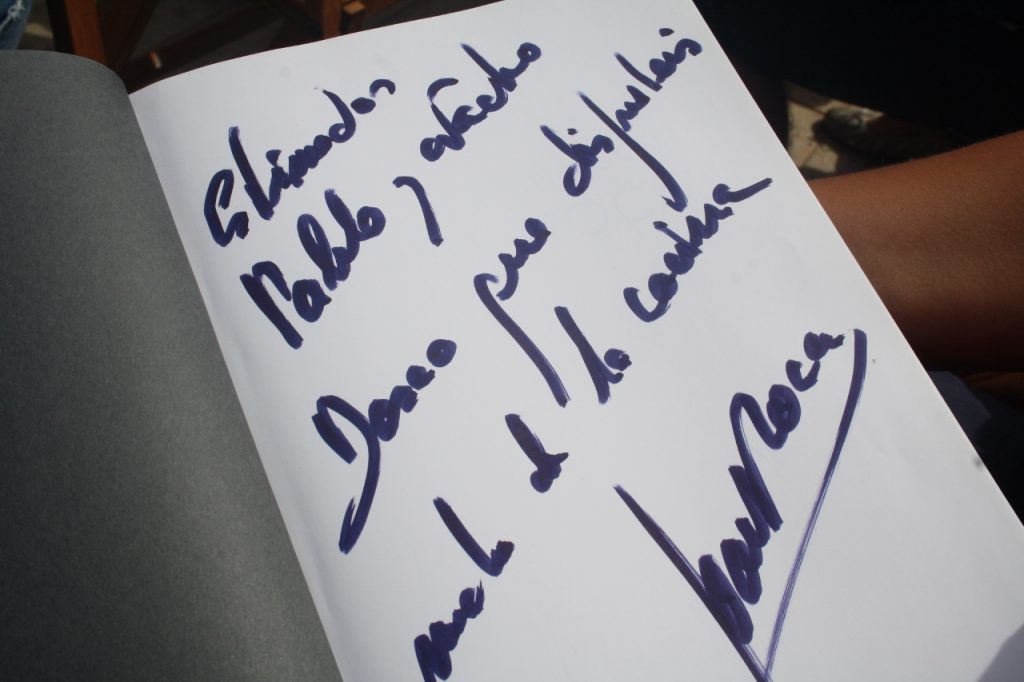 Estimados
Pablo y Nacho
Deseo que disfruteis
mucho de la cocina
Joan Roca